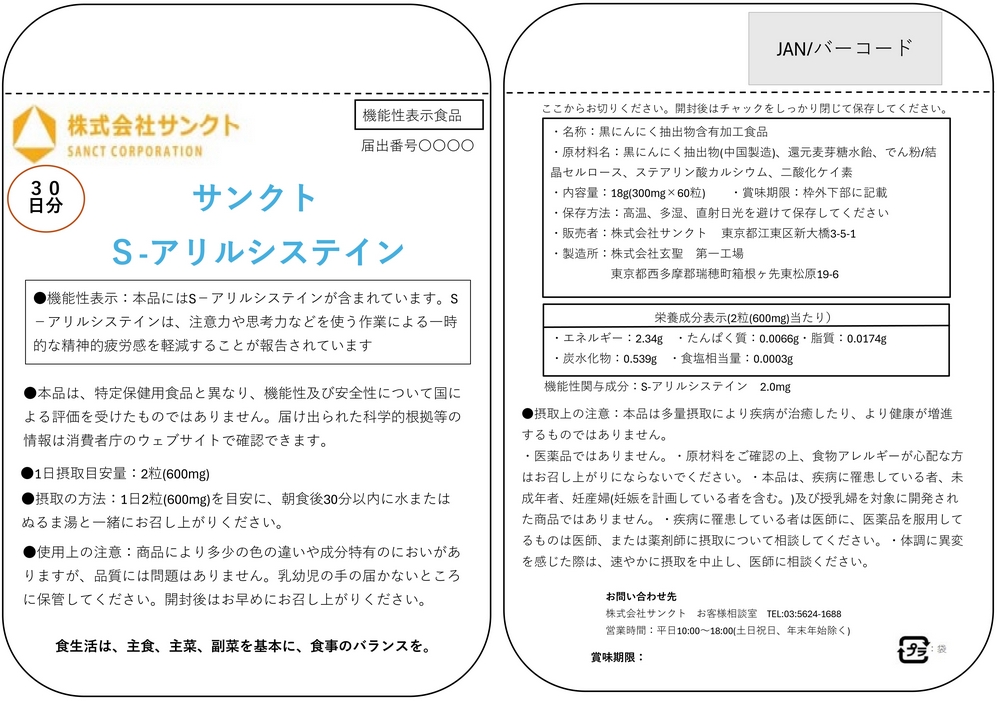 株式会社サンクト
SANCT CORPORATION
機能性表示食品
届出番号〇〇〇〇
30
日分
サンクト
S-アリルシステイン
●機能性表示：本品にはS－アリルシステインが含まれています。S
－アリルシステインは、注意力や思考力などを使う作業による一時
的な精神的疲労感を軽減することが報告されています
●本品は、特定保健用食品と異なり、機能性及び安全性について国に
よる評価を受けたものではありません。届け出られた科学的根拠等の
情報は消費者庁のウェブサイトで確認できます。
●1日摂取目安量：2粒(600mg)
●摂取の方法：1日2粒(600mg)を目安に、朝食後30分以内に水または
ぬるま湯と一緒にお召し上がりください。
●使用上の注意：商品により多少の色の違いや成分特有のにおいがあ
りますが、品質には問題はありません。乳幼児の手の届かないところ
に保管してください。開封後はお早めにお召し上がりください。
食生活は、主食、主菜、副菜を基本に、食事のバランスを。
JAN/バーコード
ここからお切りください。開封後はチャックをしっかり閉じて保存してください。
・名称：黒にんにく抽出物含有加工食品
・原材料名：黒にんにく抽出物(中国製造)、還元麦芽糖水飴、でん粉/結
晶セルロース、ステアリン酸カルシウム、二酸化ケイ素
・内容量：18g(300mg×60粒)　　・賞味期限：枠外下部に記載
・保存方法：高温、多湿、直射日光を避けて保存してください
・販売者：株式会社サンクト　東京都江東区新大橋3-5-1
・製造所：株式会社玄聖　第一工場
東京都西多摩郡瑞穂町箱根ヶ先東松原19-6
栄養成分表示(2粒(600mg)当たり）
・エネルギー：2.34g　・たんぱく質：0.0066g・脂質：0.0174g
・炭水化物：0.539g　・食塩相当量：0.0003g
機能性関与成分：S-アリルシステイン　2.0mg
●摂取上の注意：本品は多量摂取により疾病が治癒したり、より健康が増進
するものではありません。
・医薬品ではありません。・原材料をご確認の上、食物アレルギーが心配な方
はお召し上がりにならないでください。・本品は、疾病に罹患している者、未
成年者、妊産婦(妊娠を計画している者を含む。)及び授乳婦を対象に開発され
た商品ではありません。・疾病に罹患している者は医師に、医薬品を服用して
るものは医師、または薬剤師に摂取について相談してください。・体調に異変
を感じた際は、速やかに摂取を中止し、医師に相談ください。
お問い合わせ先
株式会社サンクト　お客様相談室　TEL:03:5624-1688
営業時間：平日10:00～18:00(土日祝日、年末年始除く)
賞味期限：
プラ：袋